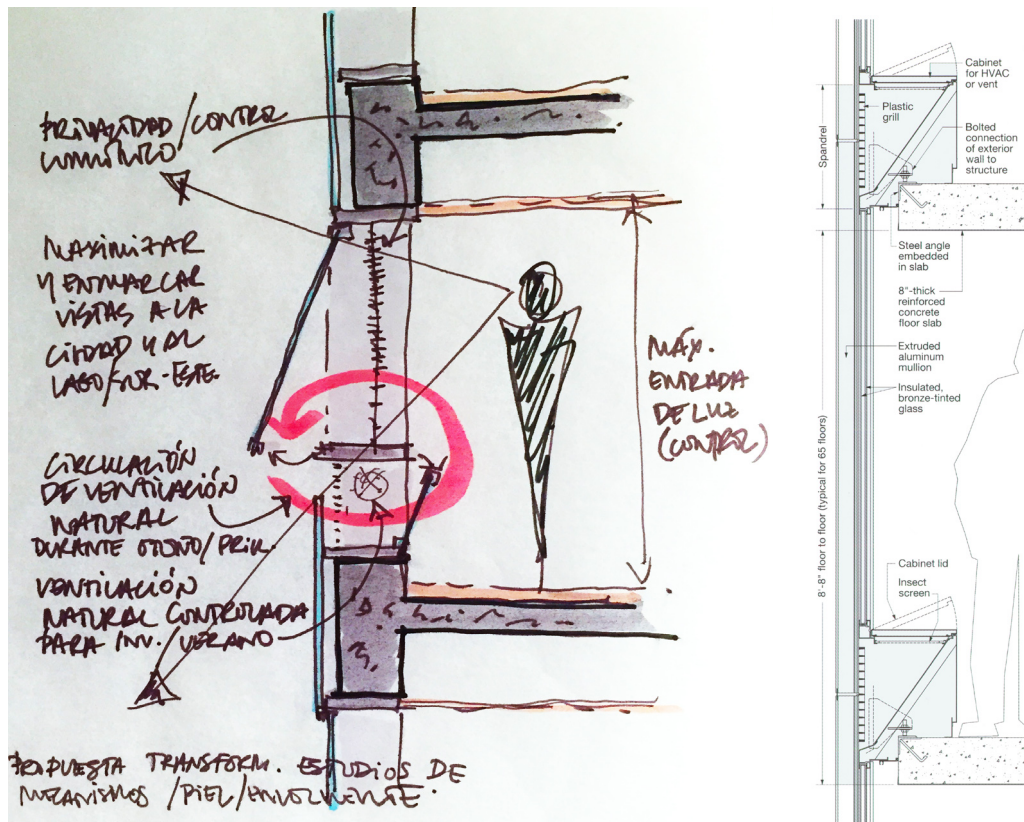 PRIVACIDAD/CONTROL
LUMÍNICO
MAXIMIZAR
Y ENMARCAR
VISTAS A LA
CIUDAD Y AL
LAGO/SUR-ESTE.
CIRCULACIÓN
DE VENTILACIÓN
NATURAL
DURANTE OTOÑO/PRIM.
VENTILACIÓN
NATURAL CONTROLADA
PARA INV./VERANO
MÁX.
ENTRADA
DE LUZ
(CONTROL)
PROPUESTA TRANSFORM. ESTUDIOS DE
MECANISMOS /PIEL/ENVOLVENTE.
Cabinet
for HVAC
or vent
Plastic
grill
Bolted
connection
of exterior
wall to
structure
Spandrel
Steel angle
embedded
in slab
8"-thick
reinforced
concrete
floor slab
Extruded
aluminum
mullion
Insulated,
bronze-tinted
glass
8'-8" floor to floor (typical for 65 floors)
Cabinet lid
Insect
screen